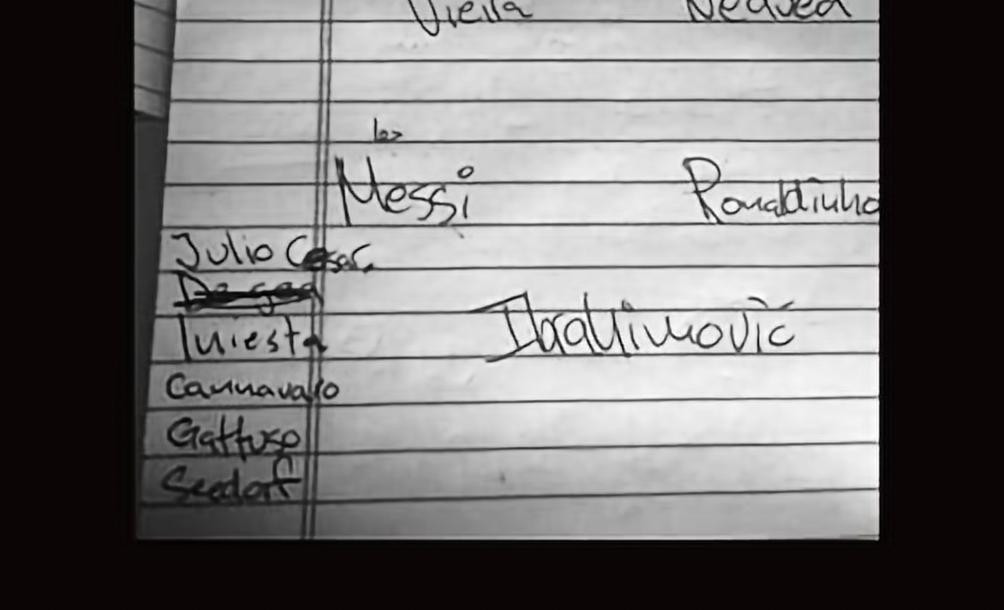 Vieira Nedved
Leo
Messi Ronaldinho
Julio Cesar
De gea
Iniesta
Ibrahimovič
Cannavaro
Gattuso
Seedorf